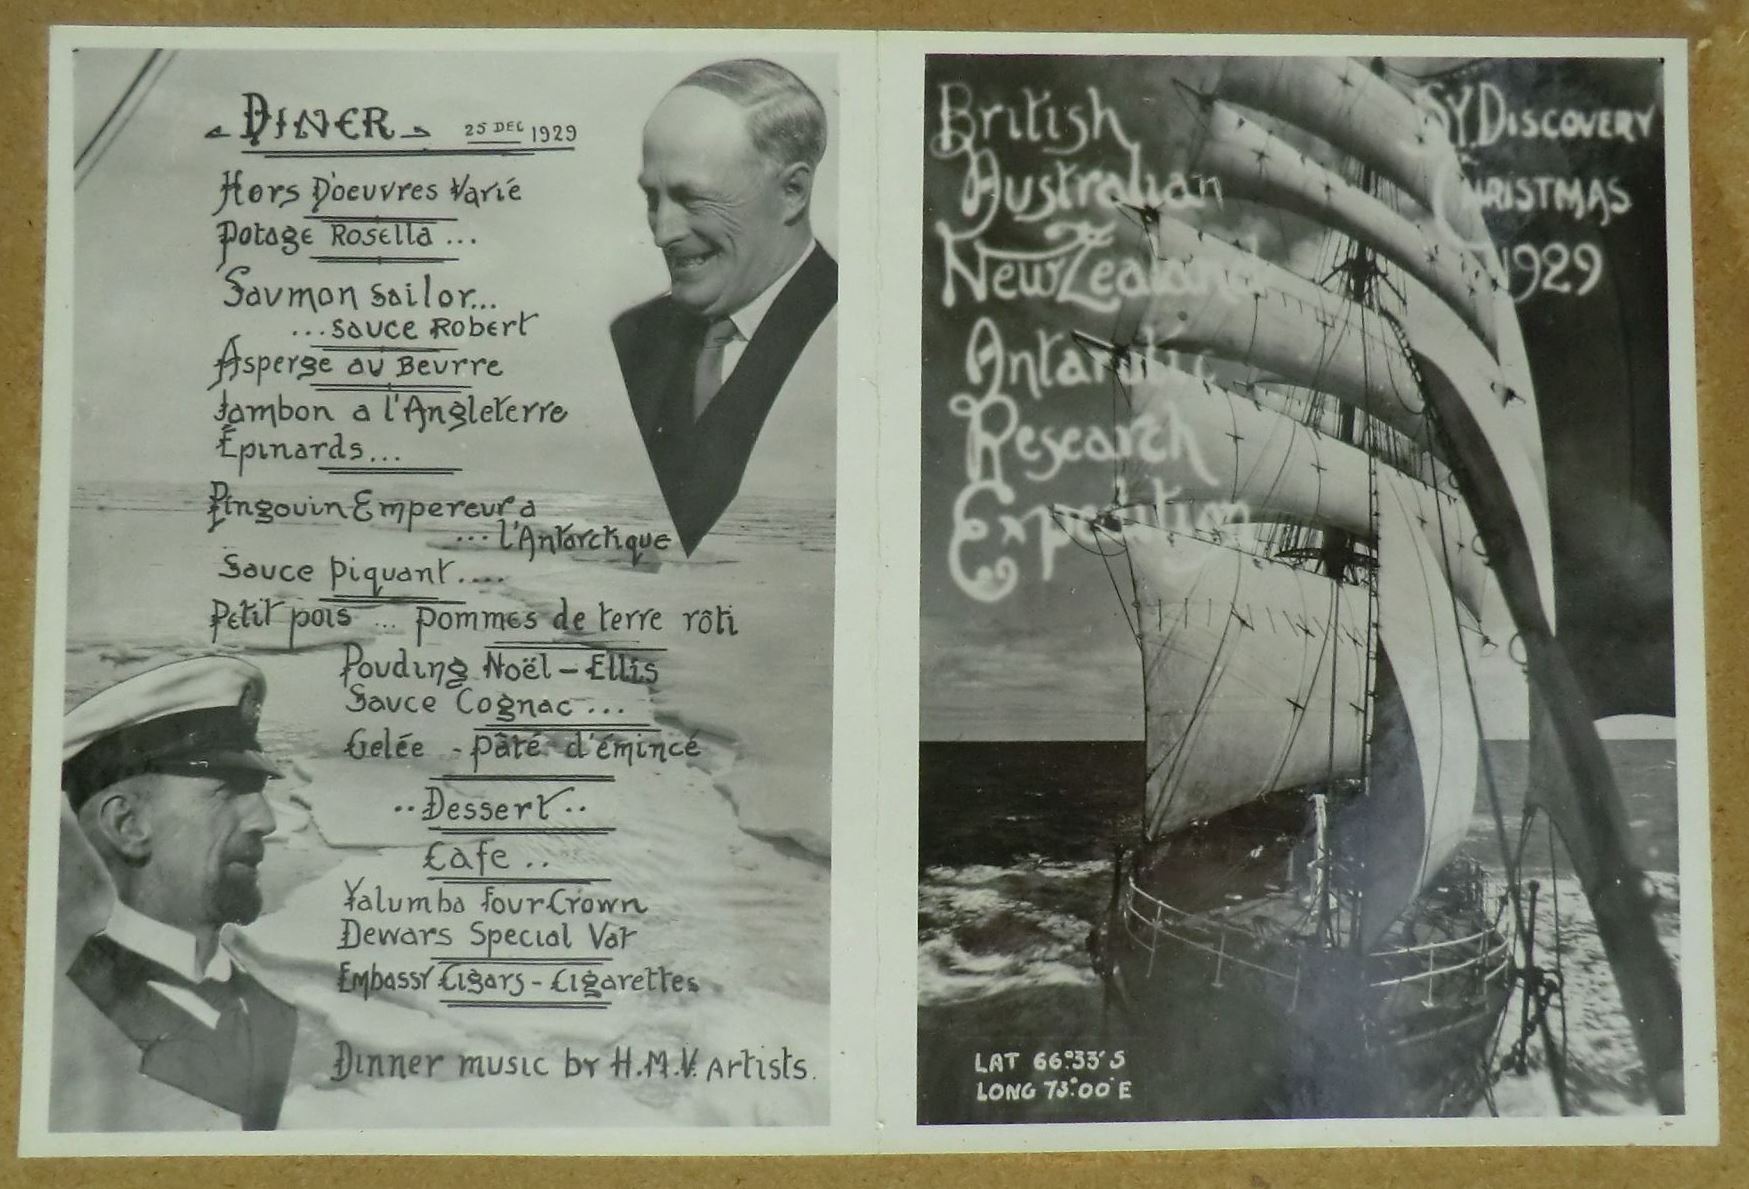 DINER 25 DEC 1929
Hors D'oeuvres Varié
Potage Rosella ...
Saumon Sailor...
...sauce Robert
Asperge au Beurre
Jambon a l'Angleterre
Épinards...
Pingouin Empereur a
... l'Antarctique
Sauce piquant....
Petit pois ... pommes de terre rôti
Pouding Noël - Ellis
Sauce Cognac ...
Gelée - pâté d'émincé
..Dessert..
Cafe ..
Yalumba Four Crown
Dewars Special Vat
Embassy Cigars - Cigarettes
Dinner music by H.M.V. Artists.
British
Australian
New Zealand
Antarctic
Research
Expedition
SY DISCOVERY
CHRISTMAS
1929
LAT 66°33' S
LONG 73°00' E